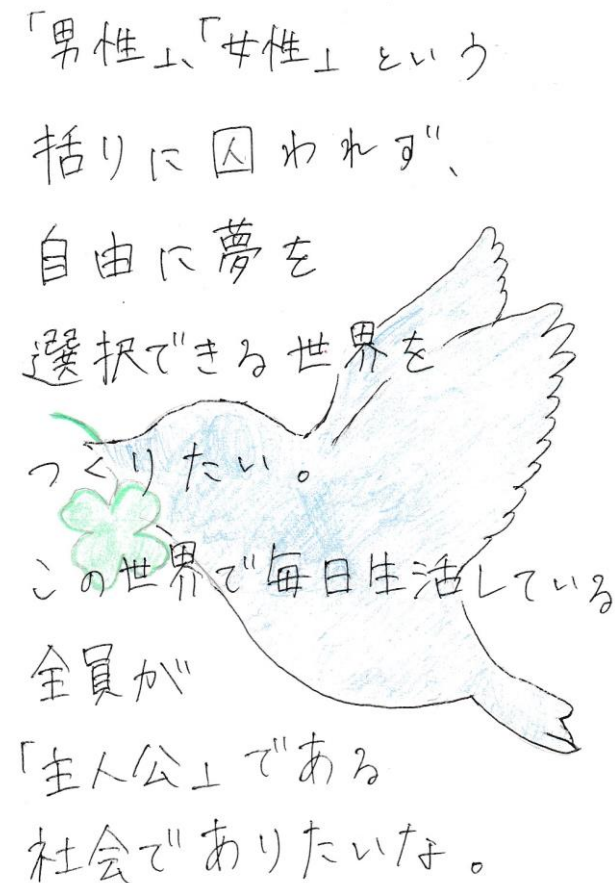 「男性」、「女性」という
括りに囚われず、
自由に夢を
選択できる世界を
つくりたい。
この世界で毎日生活している
全員が
「主人公」である
社会でありたいな。